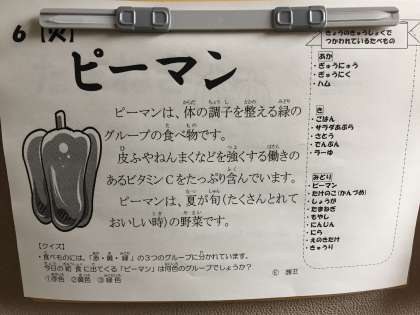 6【火】
ピーマン
ピーマンは、体の調子を整える緑の
グループの食べ物です。
皮ふやねんまくなどを強くする働きの
あるビタミンCをたっぷり含んでいます。
ピーマンは、夏が旬(たくさんとれて
おいしい時)の野菜です。
【クイズ】
・食べものには、「赤・黄・緑」の3つのグループに分かれています。
今日の給食に出てくる「ピーマン」は何色のグループでしょうか?
①赤色 ②黄色 ③緑色
きょうのきゅうしょくで
つかわれているたべもの
あか
・ぎゅうにゅう
・ぎゅうにく
・ハム
き
・ごはん
・サラダあぶら
・さとう
・でんぷん
・ラーゆ
みどり
・ピーマン
・たけのこ(かんづめ)
・しょうが
・たまねぎ
・もやし
・にんじん
・にら
・えのきたけ
・きゅうり